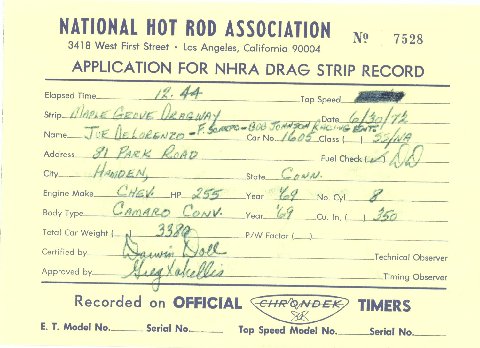 NATIONAL HOT ROD ASSOCIATION
3418 West First Street • Los Angeles, California 90004
No 7528
APPLICATION FOR NHRA DRAG STRIP RECORD
Elapsed Time 12.44 Top Speed
Strip MAPLE GROVE DRAGWAY Date 6/30/72
Name JOE DELORENZO - BOB JOHNSON RACING ENT. Car No. 1605 Class ( ) SS/NA
Address 81 PARK ROAD Fuel Check (✓) DD
City HAMDEN, State CONN.
Engine Make CHEV. HP 255 Year '69 No. Cyl 8
Body Type CAMARO CONV. Year '69 Cu. In. ( ) 350
Total Car Weight ( ) 3380 P/W Factor ( )
Certified by Darwin Doll Technical Observer
Approved by Greg Xakellis Timing Observer
Recorded on OFFICIAL CHRONDEK TIMERS
E. T. Model No. Serial No. Top Speed Model No. Serial No.